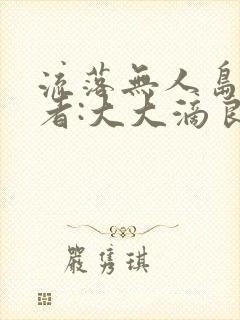 流落無人島
者:大大滴良
嚴雋琪